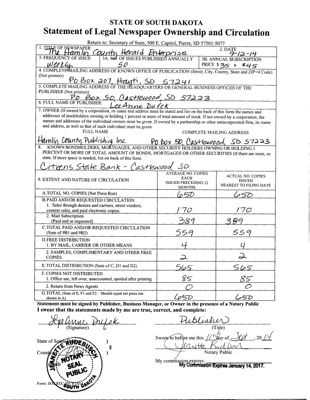 STATE OF SOUTH DAKOTA
Statement of Legal Newspaper Ownership and Circulation
Return to: Secretary of State, 500 E. Capitol, Pierre, SD 57501-5077
1. TITLE OF NEWSPAPER
2. DATE
The Hamlin County Herald Enterprise
9-12-14
3. FREQUENCY OF ISSUE
3A. NO. OF ISSUES PUBLISHED ANNUALLY
3B. ANNUAL SUBSCRIPTION
Weekly
50
PRICE $ 35 & $45
4. COMPLETE MAILING ADDRESS OF KNOWN OFFICE OF PUBLICATION (Street, City, County, State and ZIP+4 Code)
(Not printers)
Po Box 207, Hayti, SD 57241
5. COMPLETE MAILING ADDRESS OF THE HEADQUARTERS OR GENERAL BUSINESS OFFICES OF THE
PUBLISHER (Not printers)
Po Box 50, Castlewood, SD 57223
6. FULL NAME OF PUBLISHER:
LeeAnne Dufek
7. OWNER (If owned by a corporation, its name and address must be stated and list on the back of this form the names and
addresses of stockholders owning or holding 1 percent or more of total amount of stock. If not owned by a corporation, the
names and addresses of the individual owners must be given. If owned by a partnership or other unincorporated firm, its name
and address, as well as that of each individual must be given
FULL NAME
COMPLETE MAILING ADDRESS
Hamlin County Publishing Inc
Po box 50, Castlewood, SD 57223
8. KNOWN BONDHOLDERS, MORTGAGES, AND OTHER SECURITY HOLDERS OWNING OR HOLDING 1
PERCENT OR MORE OF TOTAL AMOUNT OF BONDS, MORTGAGES OR OTHER SECURITIES (If there are none, so
state. If more space is needed, list on back of this form.
Citizens State Bank - Castlewood SD
9. EXTENT AND NATURE OF CIRCULATION
AVERAGE NO. COPIES
EACH
ISSUED PRECEDING 12
MONTHS
ACTUAL NO. COPIES
ISSUED
NEAREST TO FILING DATE
A.TOTAL NO. COPIES (Net Press Run)
650
650
B.PAID AND/OR REQUESTED CIRCULATION
1. Sales through dealers and carriers, street vendors,
counter sales, and paid electronic copies.
170
170
2. Mail Subscription
(Paid and or requested)
389
389
C.TOTAL PAID AND/OR REQUESTED CIRCULATION
(Sum of 9B1 and 9B2)
559
559
D.FREE DISTRIBUTION
1. BY MAIL, CARRIER OR OTHER MEANS
4
4
2. SAMPLES, COMPLIMENTARY AND OTHER FREE
COPIES
2
2
E.TOTAL DISTRIBUTION (Sum of C, D1 and D2)
565
565
F.COPIES NOT DISTRIBUTED
1. Office use, left over, unaccounted, spoiled after printing
85
85
2. Return from News Agents
0
0
G.TOTAL (Sum of E, F1 and F2 - Should equal net press run
shown in A)
650
650
Statement must be signed by Publisher, Business Manager, or Owner in the presence of a Notary Public
I swear that the statements made by me are true, correct, and complete:
LeeAnne Dufek
Publisher
(Signature)
(Title)
State of So
Sworn to before me this 12th day of Sept, 2014
County
Notary Public
My commission expires:
My Commission Expires January 14, 2017.
NOTARY
SEAL
PUBLIC
SOUTH DAKOTA